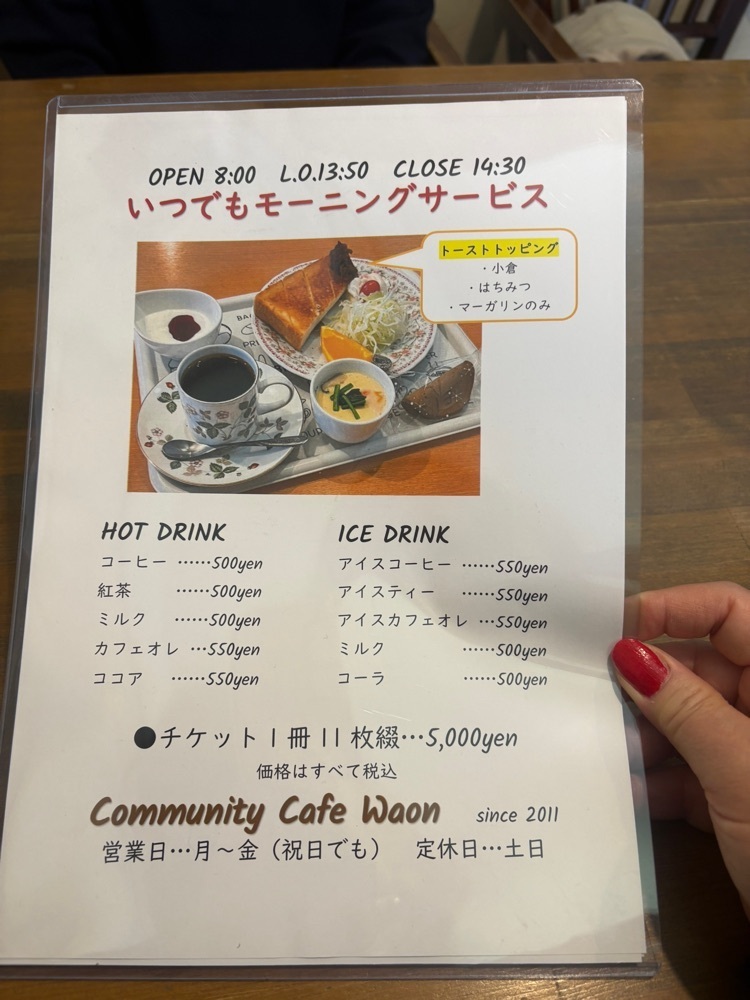 OPEN 8:00 L.O.13:50 CLOSE 14:30
いつでもモーニングサービス
トーストトッピング
・小倉
・はちみつ
・マーガリンのみ
HOT DRINK
コーヒー ……500yen
紅茶 ……500yen
ミルク ……500yen
カフェオレ …550yen
ココア ……550yen
ICE DRINK
アイスコーヒー ……550yen
アイスティー ……550yen
アイスカフェオレ …550yen
ミルク ……500yen
コーラ ……500yen
●チケット1冊11枚綴…5,000yen
価格はすべて税込
Community Cafe Waon since 2011
営業日…月～金（祝日でも） 定休日…土日